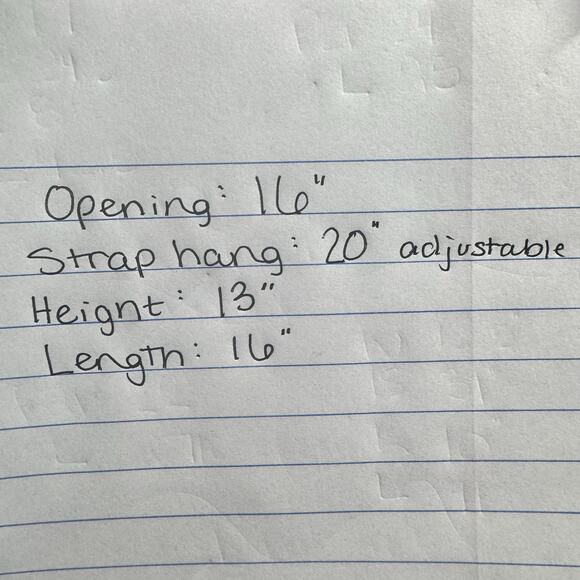 Opening: 16"
Strap hang: 20" adjustable
Heignt: 13"
Length: 16"